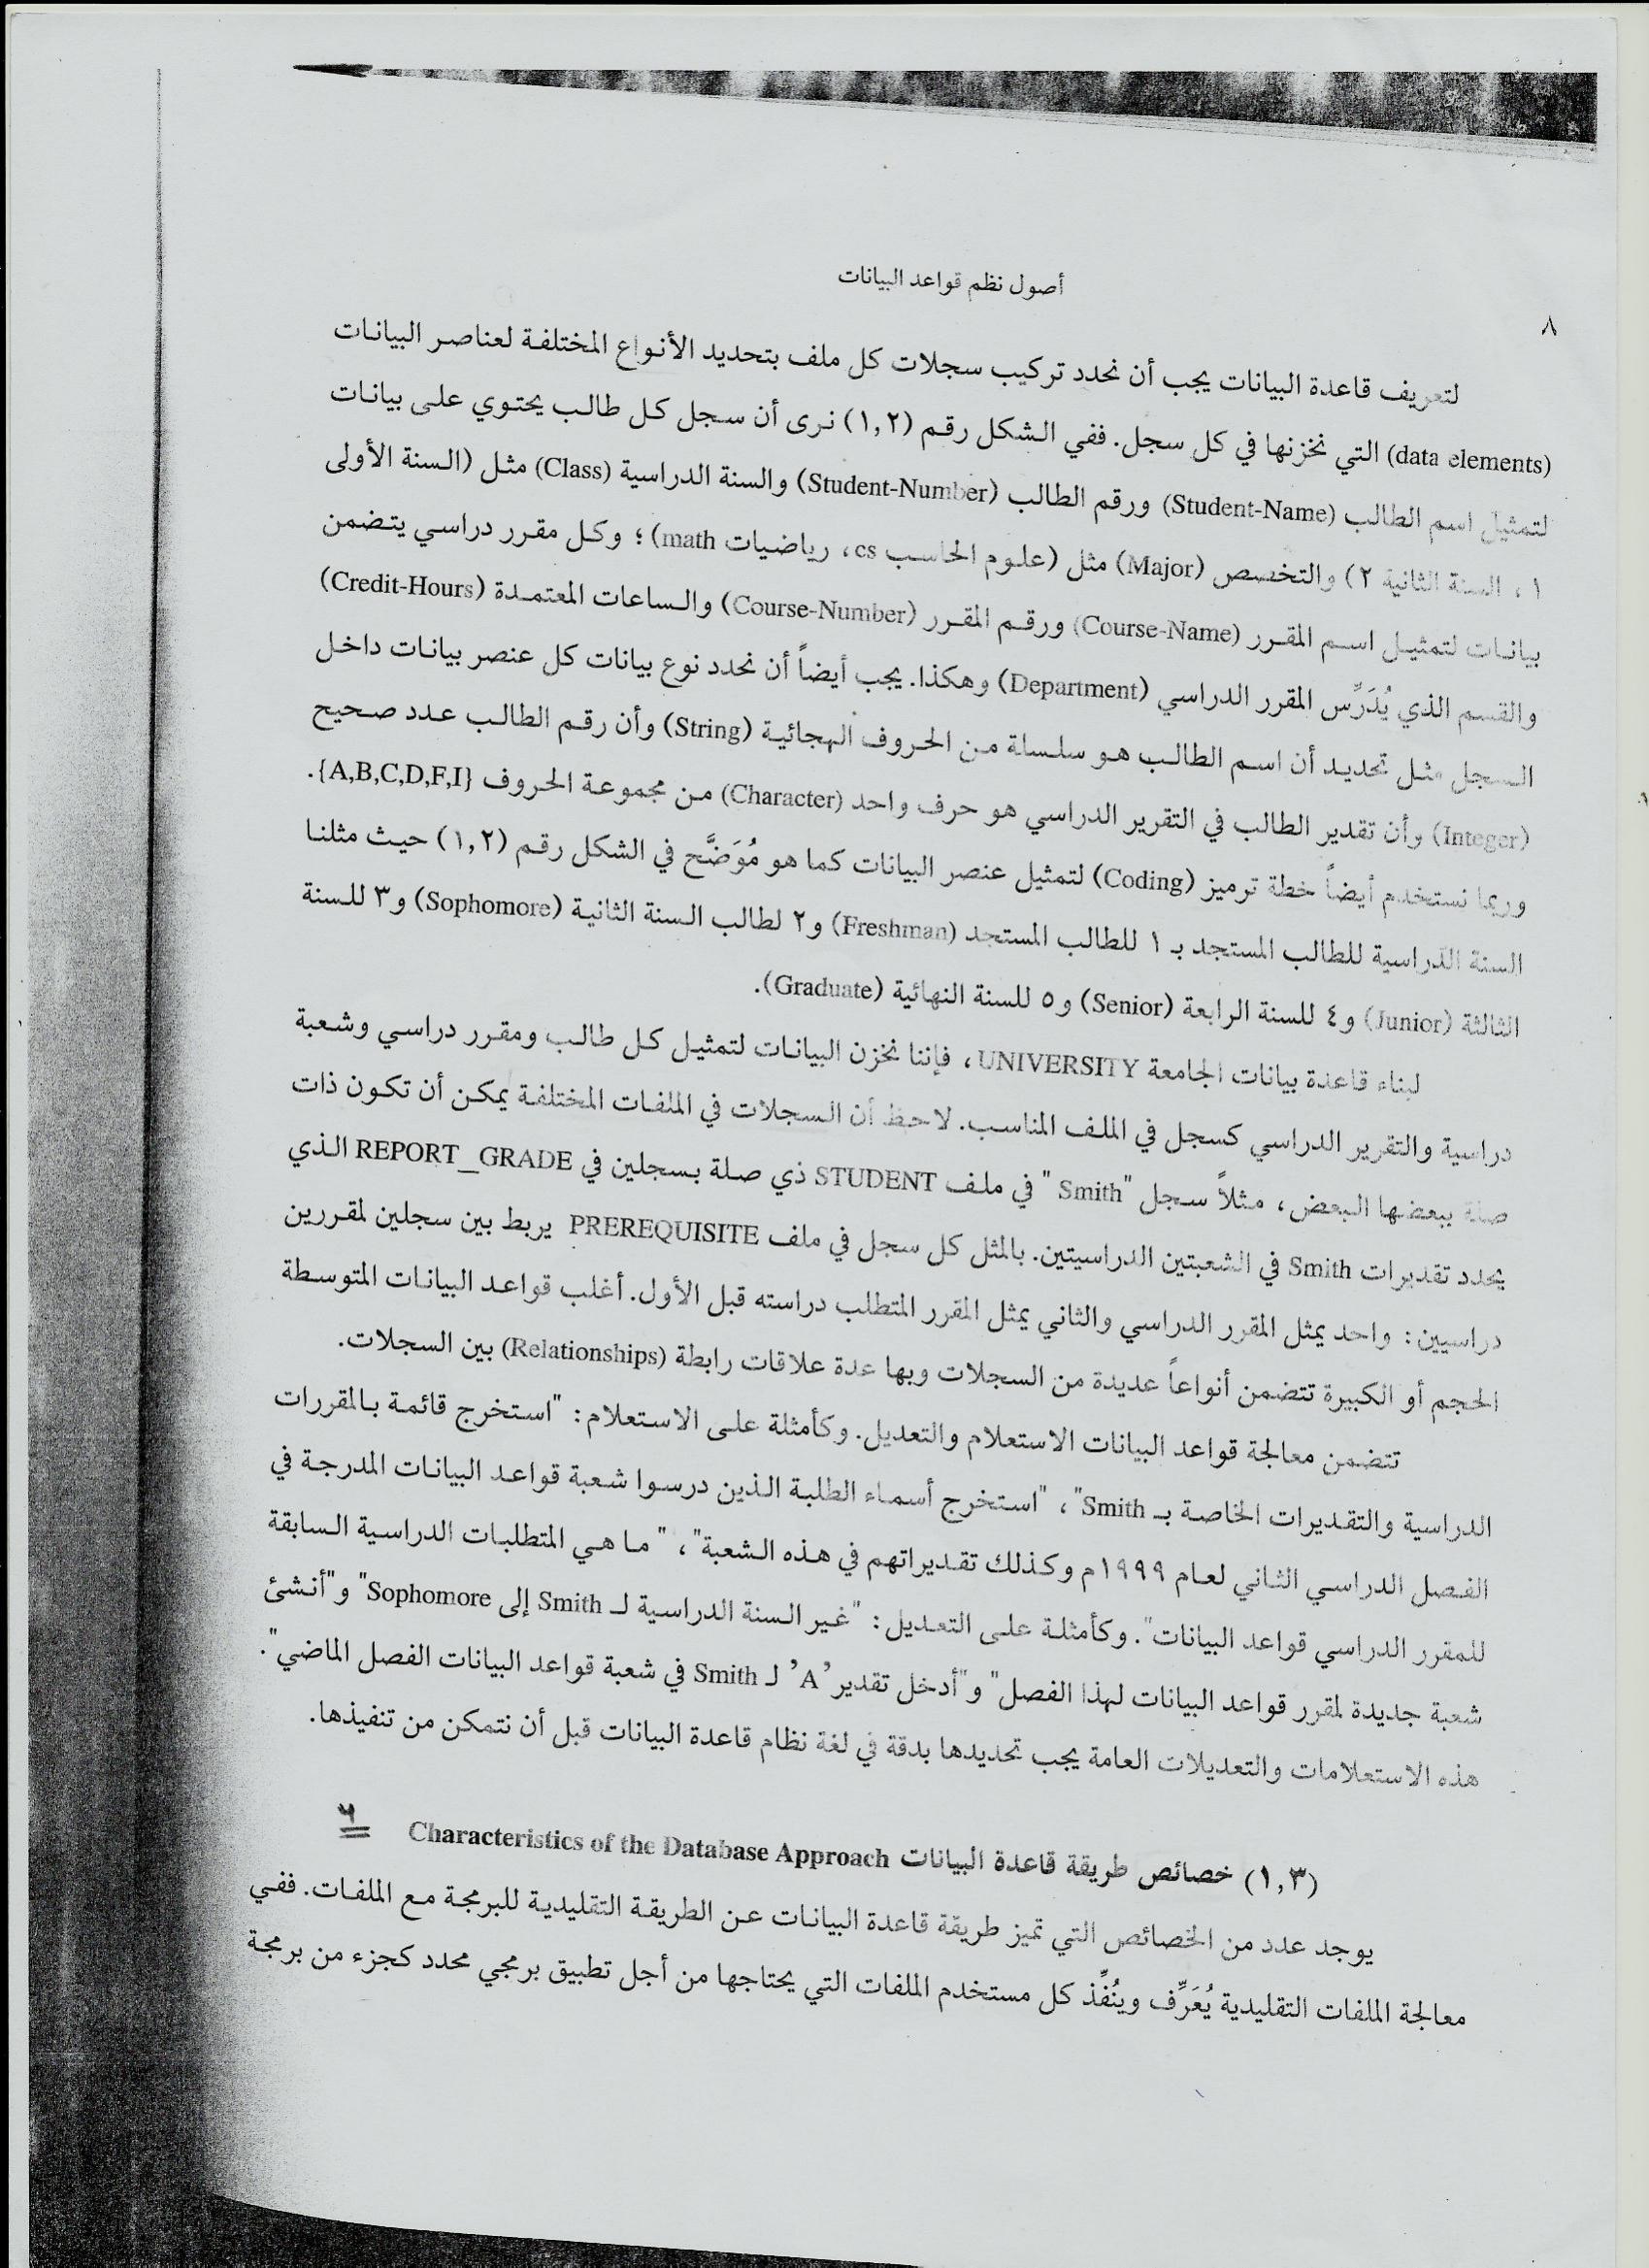 أصول نظم قواعد البيانات
٨
لتعريف قاعدة البيانات يجب أن نحدد تركيب سجلات كل ملف بتحديد الأنواع المختلفة لعناصر البيانات
(data elements) التي نخزنها في كل سجل. ففي الشكل رقم (١,٢) نرى أن سجل كل طالب يحتوي على بيانات
لتمثيل اسم الطالب (Student-Name) ورقم الطالب (Student-Number) والسنة الدراسية (Class) مثل (السنة الأولى
١ ، السنة الثانية ٢) والتخصص (Major) مثل (علوم الحاسب cs، رياضيات math) ؛ وكل مقرر دراسي يتضمن
بيانات لتمثيل اسم المقرر (Course-Name) ورقم المقرر (Course-Number) والساعات المعتمدة (Credit-Hours)
والقسم الذي يُدَرِّس المقرر الدراسي (Department) وهكذا. يجب أيضاً أن نحدد نوع بيانات كل عنصر بيانات داخل
السجل مثل تحديد أن اسم الطالب هو سلسلة من الحروف الهجائية (String) وأن رقم الطالب عدد صحيح
(Integer) وأن تقدير الطالب في التقرير الدراسي هو حرف واحد (Character) من مجموعة الحروف {A,B,C,D,F,I}.
وربما نستخدم أيضاً خطة ترميز (Coding) لتمثيل عنصر البيانات كما هو مُوَضَّح في الشكل رقم (١,٢) حيث مثلنا
السنة الدراسية للطالب المستجد بـ ١ للطالب المستجد (Freshman) و٢ لطالب السنة الثانية (Sophomore) و٣ للسنة
الثالثة (Junior) و٤ للسنة الرابعة (Senior) و٥ للسنة النهائية (Graduate).
لبناء قاعدة بيانات الجامعة UNIVERSITY، فإننا نخزن البيانات لتمثيل كل طالب ومقرر دراسي وشعبة
دراسية والتقرير الدراسي كسجل في الملف المناسب. لاحظ أن السجلات في الملفات المختلفة يمكن أن تكون ذات
صلة ببعضها البعض، مثلاً سجل "Smith " في ملف STUDENT ذي صلة بسجلين في REPORT_GRADE الذي
يحدد تقديرات Smith في الشعبتين الدراسيتين. بالمثل كل سجل في ملف PREREQUISITE يربط بين سجلين لمقررين
دراسيين: واحد يمثل المقرر الدراسي والثاني يمثل المقرر المتطلب دراسته قبل الأول. أغلب قواعد البيانات المتوسطة
الحجم أو الكبيرة تتضمن أنواعاً عديدة من السجلات وبها عدة علاقات رابطة (Relationships) بين السجلات.
تتضمن معالجة قواعد البيانات الاستعلام والتعديل. وكأمثلة على الاستعلام: "استخرج قائمة بالمقررات
الدراسية والتقديرات الخاصة بـ Smith"، "استخرج أسماء الطلبة الذين درسوا شعبة قواعد البيانات المدرجة في
الفصل الدراسي الثاني لعام ١٩٩٩م وكذلك تقديراتهم في هذه الشعبة"، " ما هي المتطلبات الدراسية السابقة
للمقرر الدراسي قواعد البيانات". وكأمثلة على التعديل: "غير السنة الدراسية لـ Smith إلى Sophomore" و"أنشئ
شعبة جديدة لمقرر قواعد البيانات لهذا الفصل" و"أدخل تقدير ’A’ لـ Smith في شعبة قواعد البيانات الفصل الماضي".
هذه الاستعلامات والتعديلات العامة يجب تحديدها بدقة في لغة نظام قاعدة البيانات قبل أن نتمكن من تنفيذها.
(١,٣) خصائص طريقة قاعدة البيانات Characteristics of the Database Approach
يوجد عدد من الخصائص التي تميز طريقة قاعدة البيانات عن الطريقة التقليدية للبرمجة مع الملفات. ففي
معالجة الملفات التقليدية يُعَرِّف ويُنفِّذ كل مستخدم الملفات التي يحتاجها من أجل تطبيق برمجي محدد كجزء من برمجة